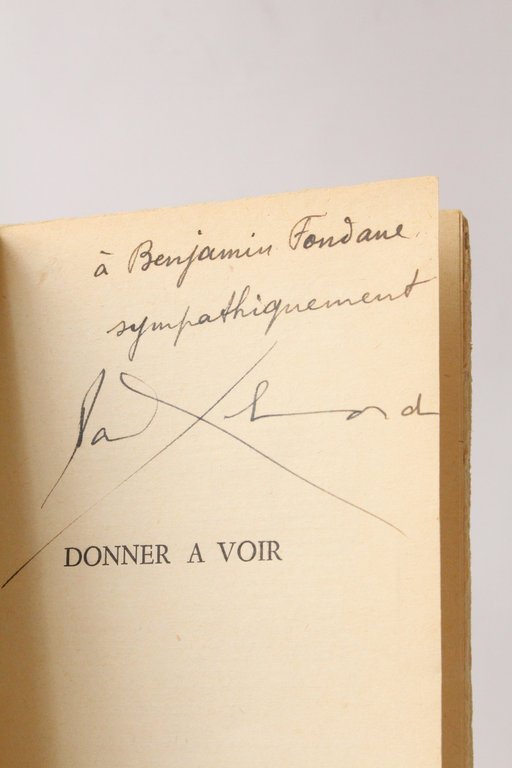 à Benjamin Fondane
sympathiquement
Paul Eluard
DONNER A VOIR